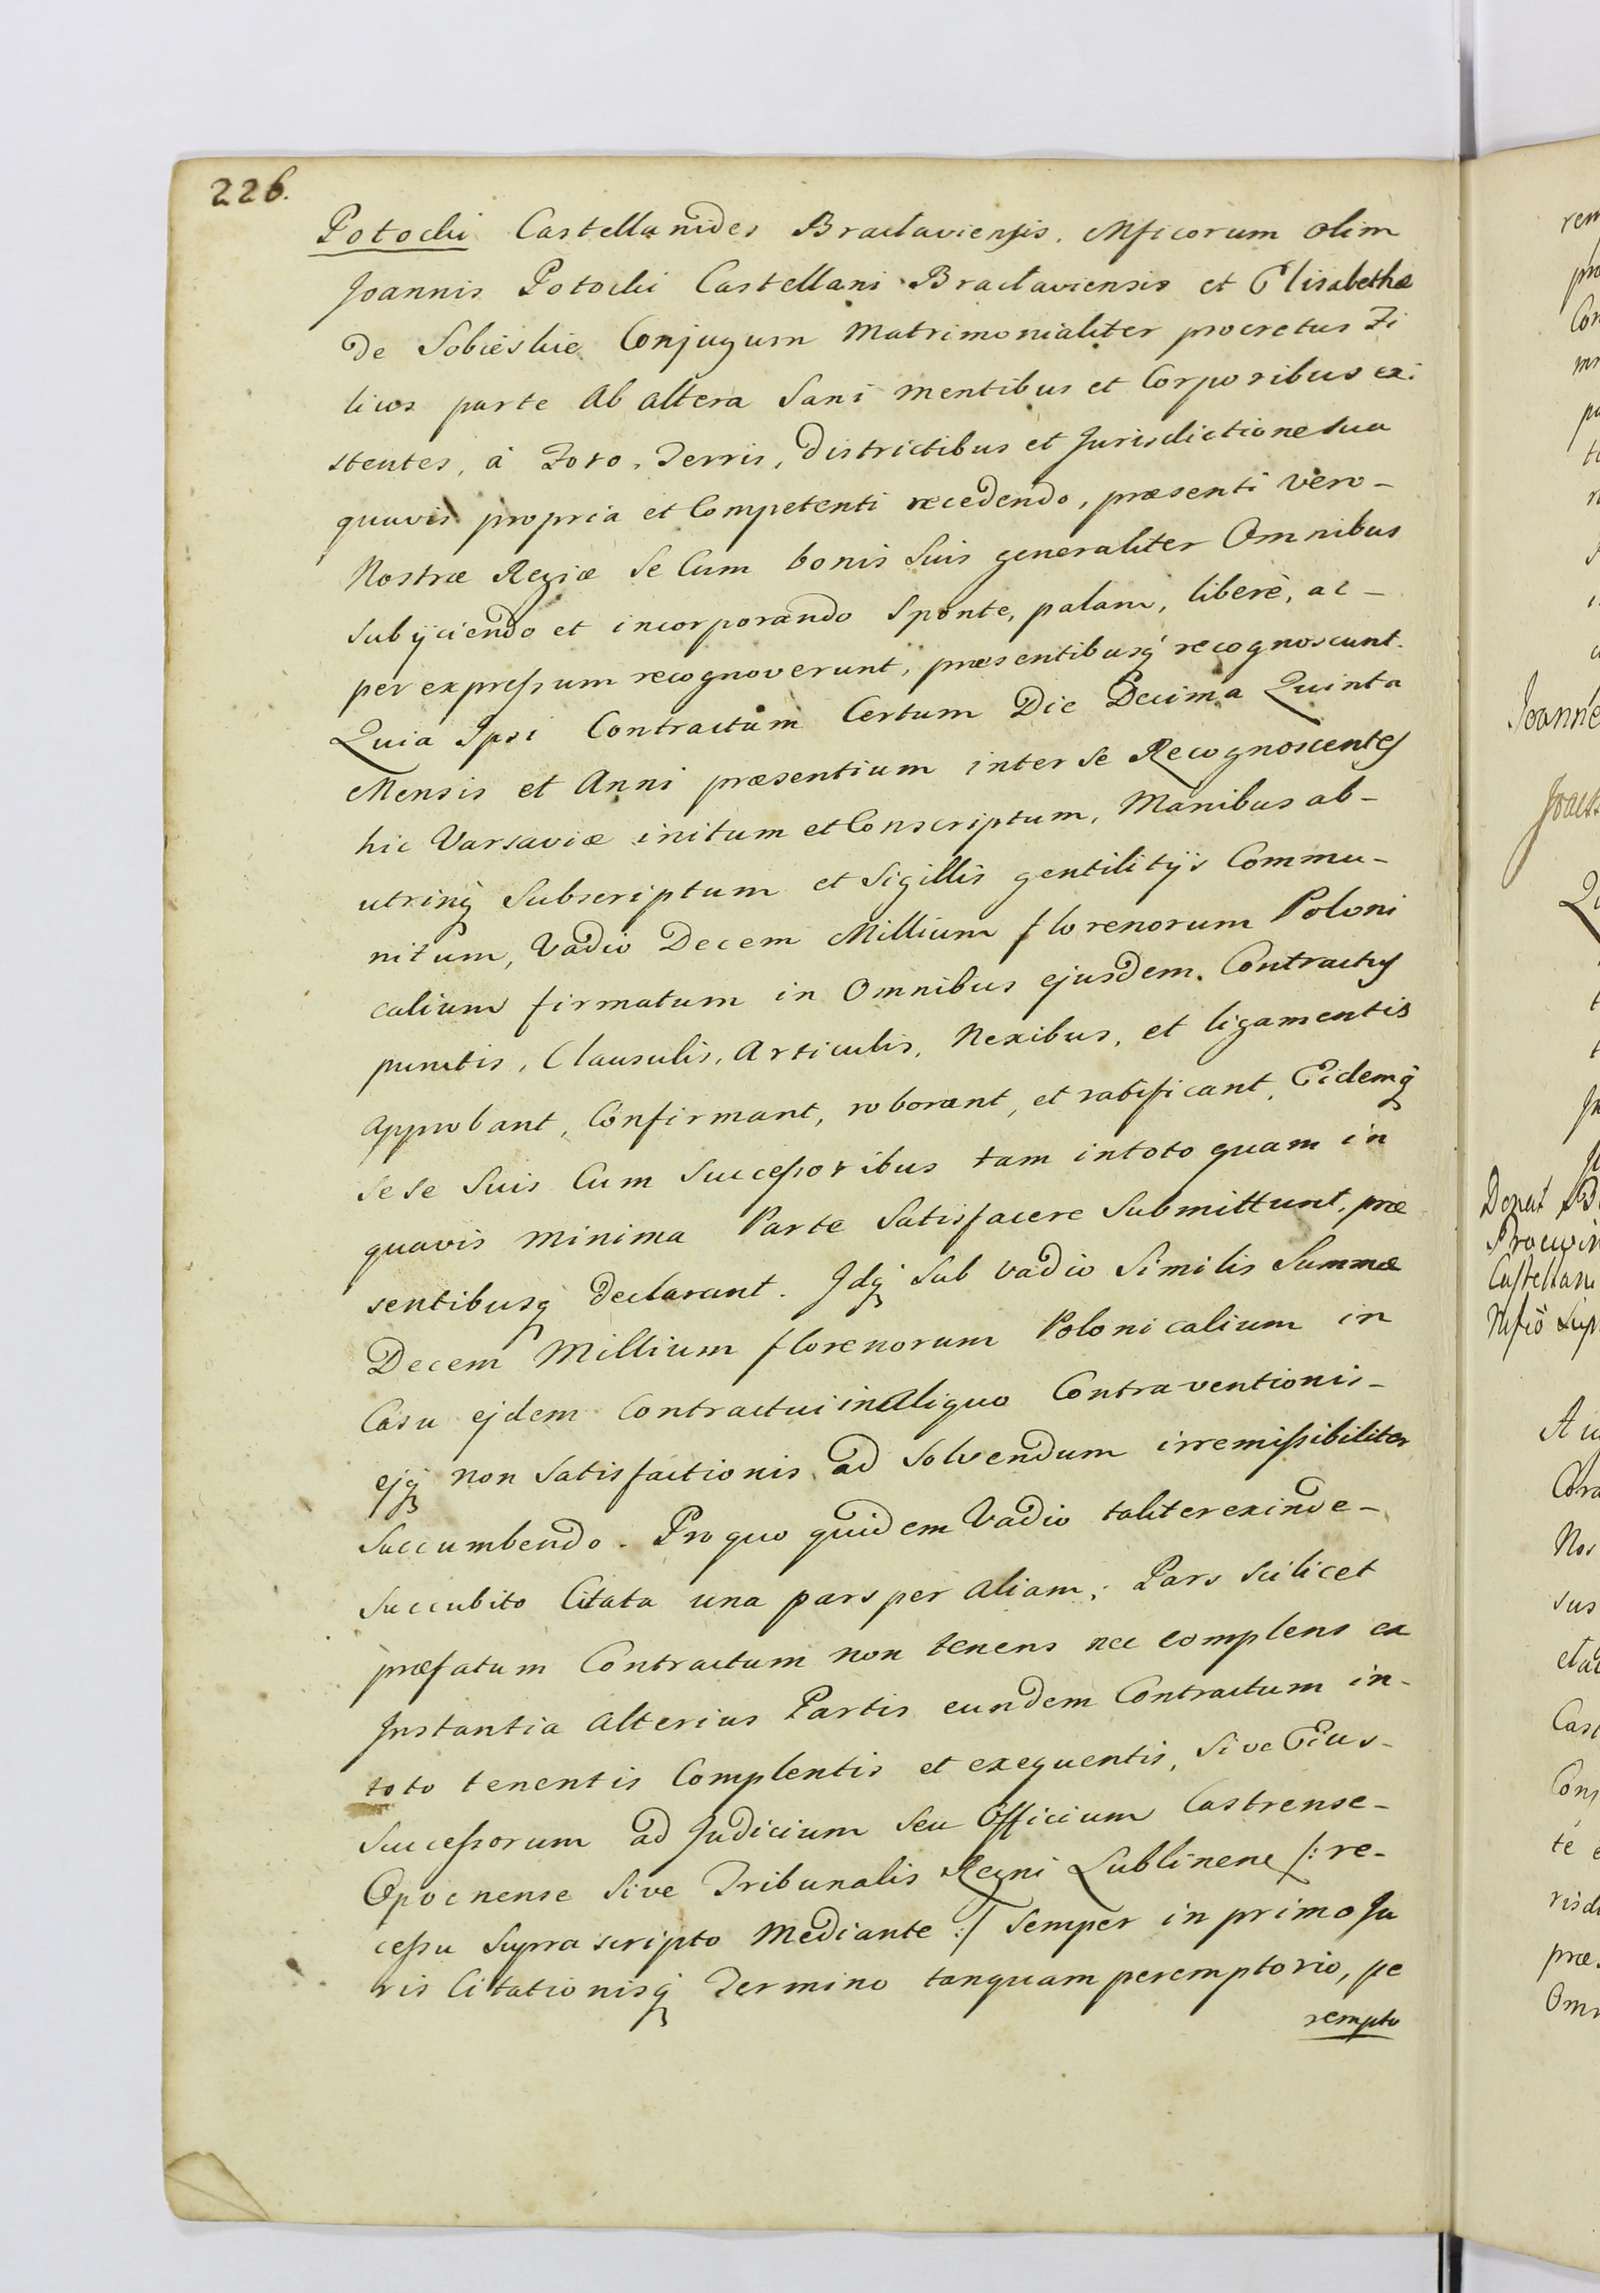 226.
Potocki Castellanides Braclaviensis. Mficorum olim
Joannis Potocki Castellani Braclaviensis et Elisabethæ
de Sobieskie Conjugum Matrimonialiter procretus Fi
lios parte ab altera Sani mentibus et Corporibus exi
stentes, à Foro, Terris, Districtibus et Jurisdictione sua
quavis propria et Competenti recedendo, præsenti vero-
Nostræ Regiæ se Cum bonis suis generaliter Omnibus
subÿciendo et incorporando Sponte, palam, liberè, ac-
per expressum recognoverunt, præsentibusq́ recognoscunt.
Quia Ipsi Contractum Certum Die Decima Quinta
Mensis et Anni præsentium inter se Recognoscentes
hic Varsaviæ initum et Conscriptum, Manibus ab-
utrinq́ Subscriptum et Sigillis gentilitÿs Commu-
nitum, Vadio Decem Millium florenorum Poloni
calium firmatum in Omnibus ejusdem Contractus
punctis, Clausulis, Articulis, Nexibus, et ligamentis
approbant, Confirmant, roborant, et ratificant, Eidemq́
sese Suis Cum Successoribus tam intoto quam in
quavis minima Parte Satisfacere Submittunt, præ
sentibusq́ declarant. Idq́ Sub vadio Similis Summæ
Decem Millium florenorum Polonicalium in
Casu ejdem Contractui inaliquo Contraventionis-
ejq́ non Satisfactionis ad Solvendum irremissibiliter
Succumbendo. Pro quo quidem Vadio taliter exinde-
Succubito Citata una pars per aliam; Pars scilicet
præfatum Contractum non tenens nec complens ex
Instantia Alterius Partis eundem Contractum in-
toto tenentis Complentis et exequentis, Sive Eius-
Successorum ad Judicium Seu Officium Castrense-
Opocnense Sive Tribunalis Regni Lublinen /: re-
cessu Suprascripto Mediante :/ Semper in primo Ju
ris Citationisq́ Termino tanquam peremptorio, pe
rempto
Joanne
Castellan